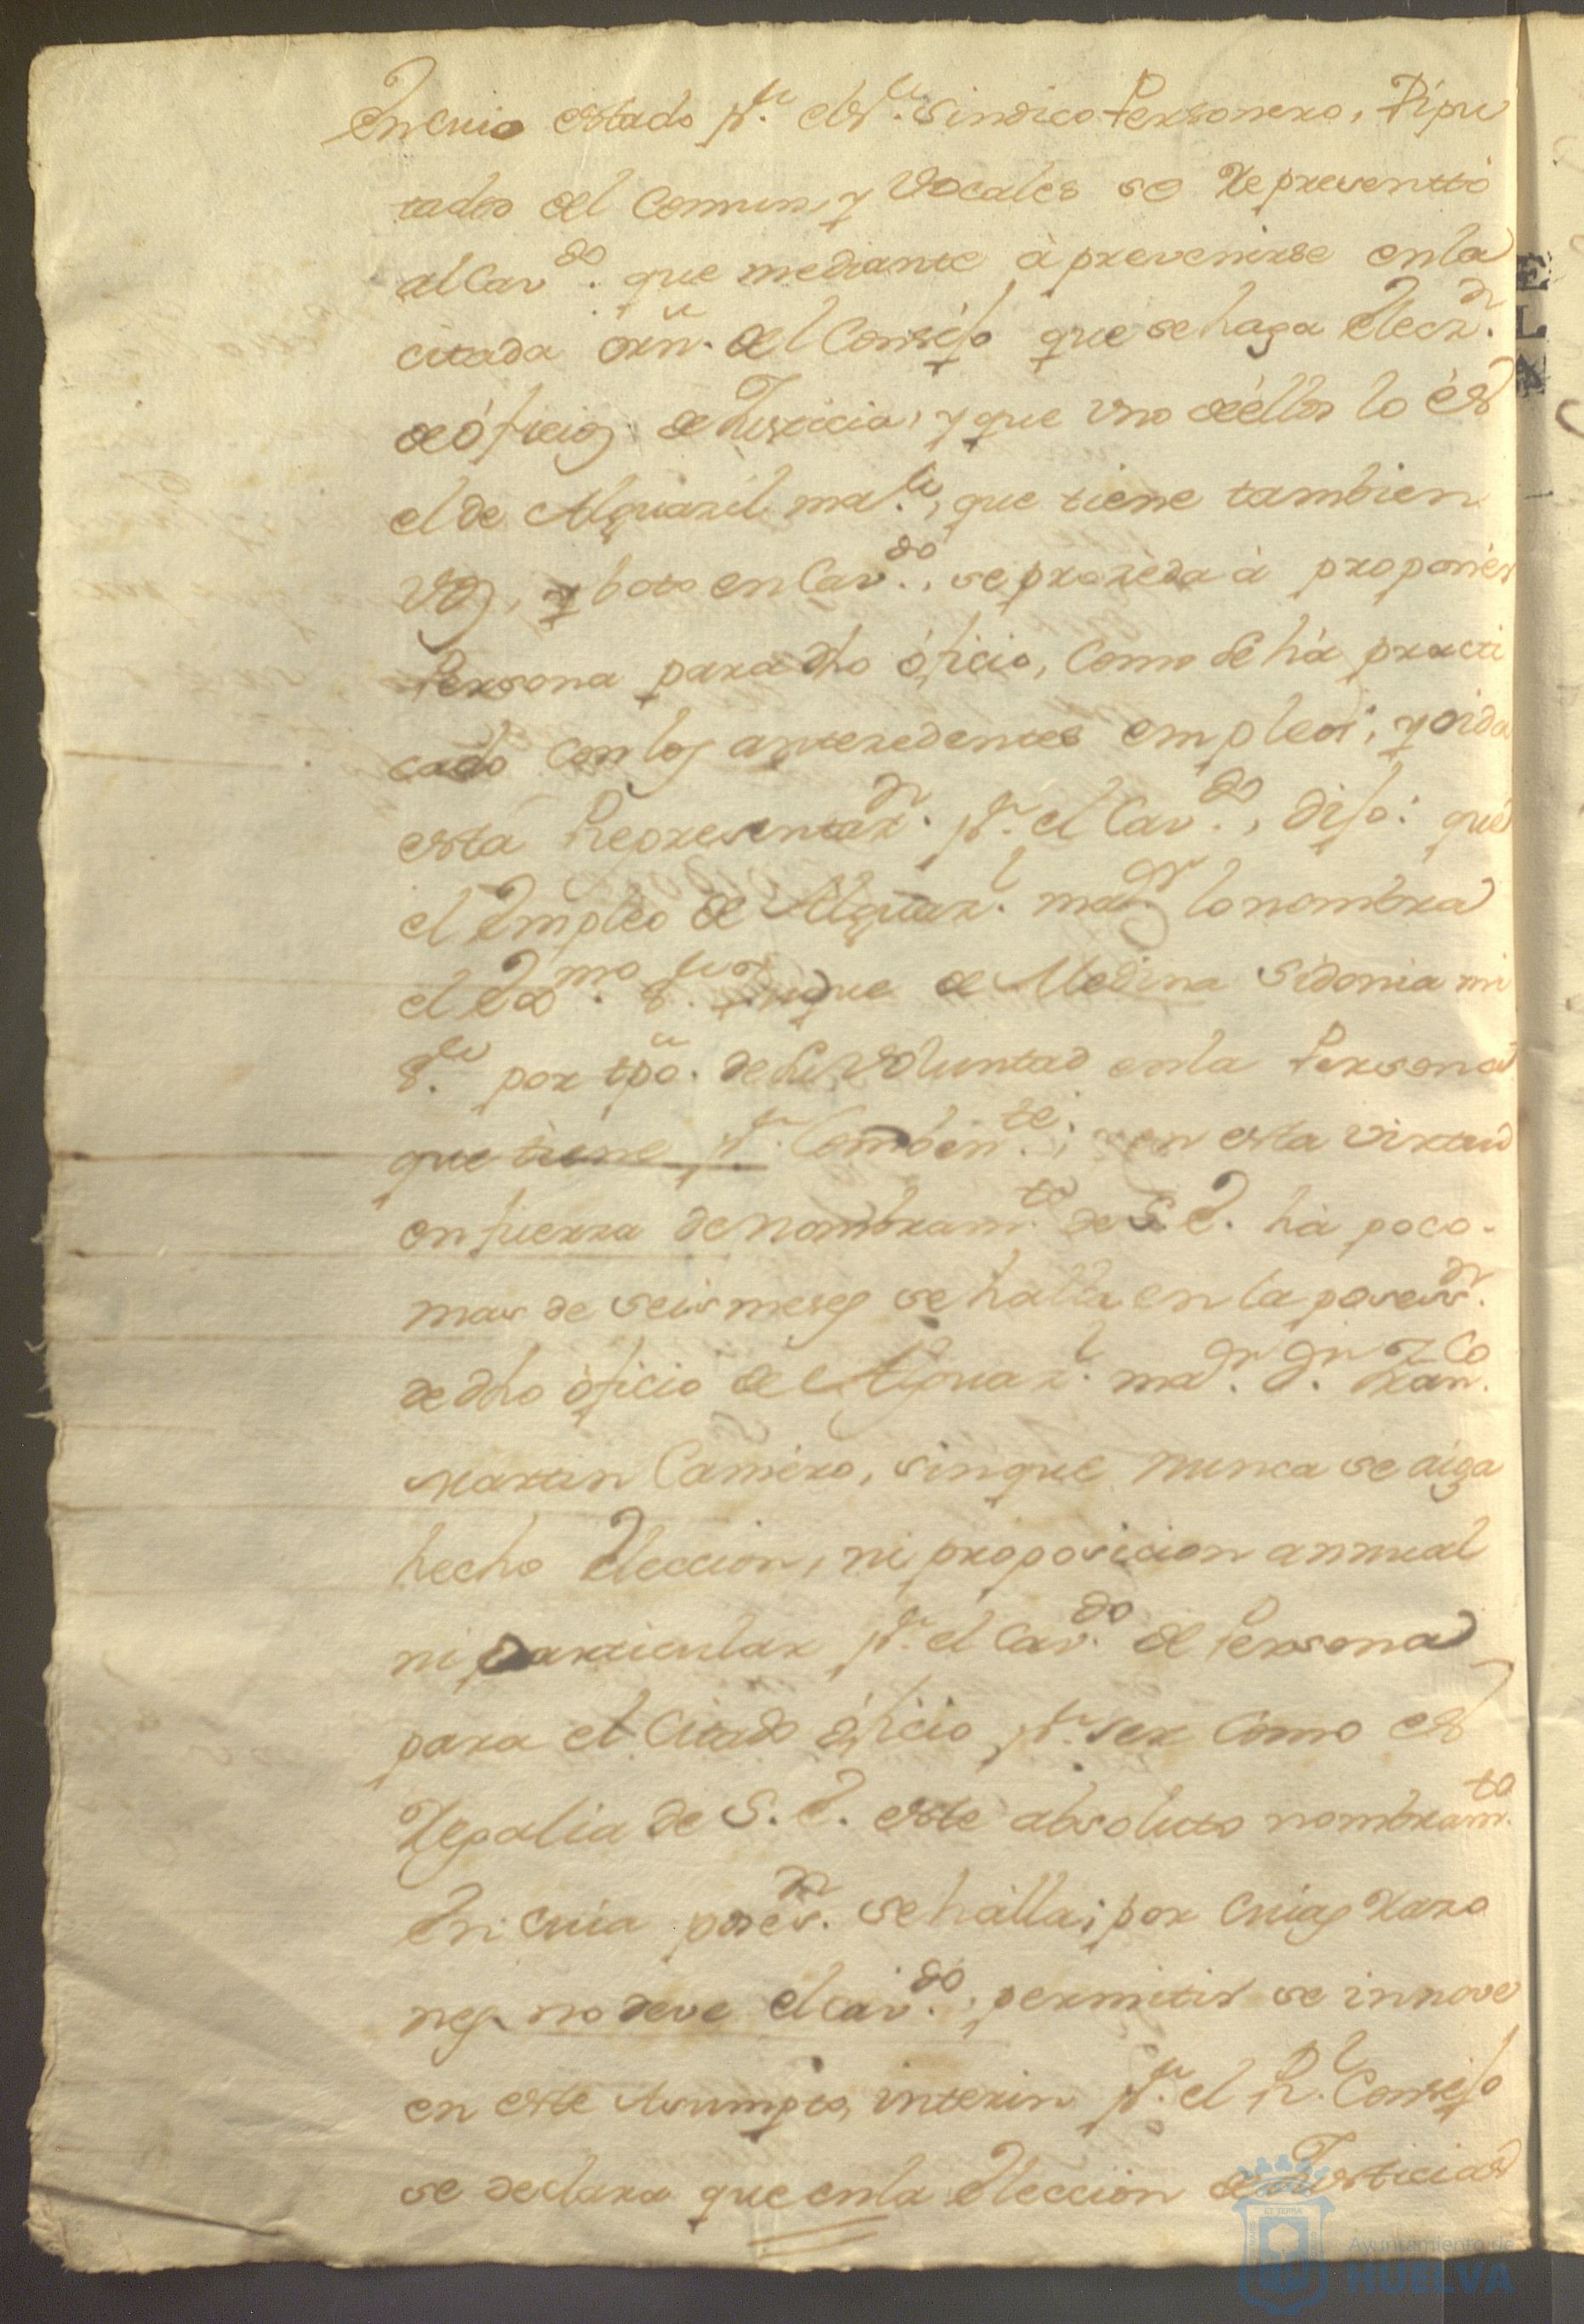 En cuio estado pr. el Sr. Sindico Personero, Dipu
tados del Comun, y Vocales se Representtó
al Cavdo. que mediante à prevenirse en la
citada orn. del Consejo que se haga Elecn.
de óficios de Justicia, y que uno de éllos lo és
el de Alguazil mar., que tiene tambien
voz, y boto en Cavdo., se prozèda à proponèr
Persona para dho óficio, como se hà practi
cado con los anterzedentes empleos; y oida
esta Representazn. pr. el Cavdo., dijo: que
el Empleo de Alguazl. mar. lo nombra
el Exmo. Sr. Duque de Medina Sidonia mi
Sr. por tpo. de su Voluntad en la Persona
que tiene pr. combente.; y en esta virtud
en fuerza de nombramto. de S. E. hà poco
mas de seis meses se halla en la posesn.
de dho óficio de Alguazl. mar. Dn. Franco.
Martin Camèro, sin que nunca se aiga
hecho Eleccion, ni proposicion annual
ni particular pr. el Cavdo. de Persona
para el Citado óficio pr. ser como es
Regalia de S. E. este absoluto nombramto.
En cuia posesn. se hálla; por cuias razo
nes no deve el Cavdo., permitir se innove
en este Asumpto, interin pr. el Rl. Consejo
se declara que en la Eleccion de Justicias
E
L
N
Ayuntamiento de
HUELVA